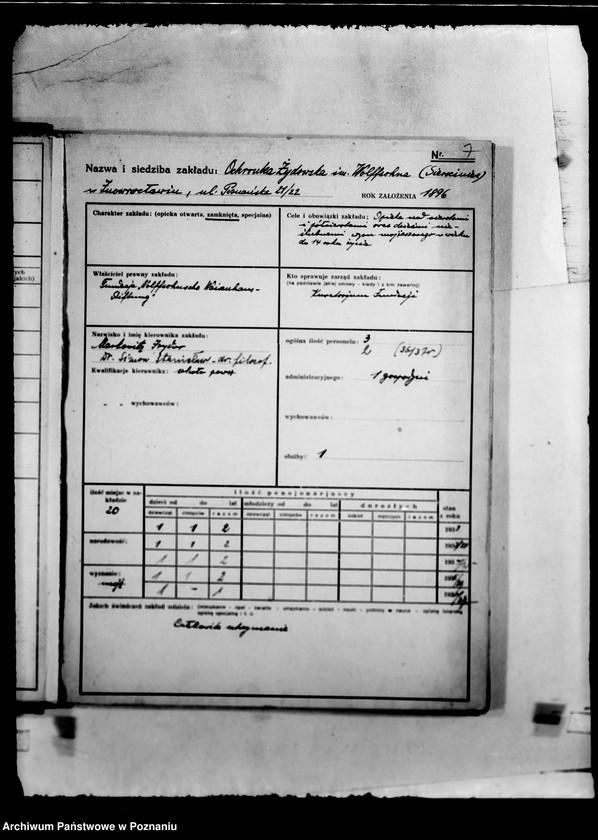 Nr. 7
Nazwa i siedziba zakładu: Ochronka Żydowska im. Wolffsohna (Sierociniec)
w Inowrocławiu, ul. Poznańska 21/22 ROK ZAŁOŻENIA 1896
Charakter zakładu: (opieka otwarta, zamknięta, specjalna)
Cele i obowiązki zakładu: Opieka nad sierotami
i półsierotami oraz dziećmi
wyzn. mojżeszowego w wieku
do 14 roku życia
Właściciel prawny zakładu:
Fundacja „Wolffsohnsche Waisenhaus-
Stiftung"
Kto sprawuje zarząd zakładu:
(na podstawie jakiej umowy - kiedy i z kim zawartej)
Kuratorjum Fundacji
Nazwisko i imię kierownika zakładu:
Markowitz
Dr. Simon Stanisław - dr. filozof.
Kwalifikacje kierownika: szkoła powsz
„ „ wychowawców:
ogólna ilość personelu: 3
2 (36/37r)
administracyjnego: 1 gospodyni
wychowawców:
służby: 1
ilość miejsc w za-
kładzie
20
ilość pensjonarjuszy
dzieci od do lat
młodzieży od do lat
dorosłych
stan
z roku
dziewcząt chłopców razem
dziewcząt chłopców razem
kobiet mężczyzn razem
1 1 2
narodowość:
1 1 2
1 1 2
wyznanie:
mojż
1 1 2
1 - 1
Jakich świadczeń zakład udziela: (mieszkanie - opał - światło - utrzymanie - odzież - nauki - pomocy w nauce - opieki lekarskiej
opieki specjalnej i t. d.
Całkowite utrzymanie
Archiwum Państwowe w Poznaniu